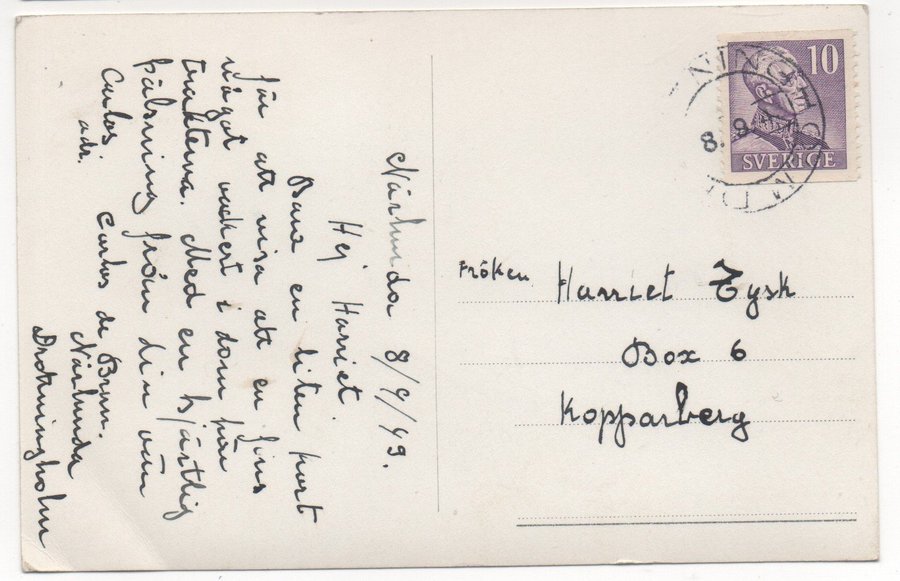 Närlunda 8/9/49.
Hej Harriet.
Bara en liten kort
för att visa att en fins
något vackert i dom här
trakterna. Med en hjärtlig
hälsning från din vän
Carlos.
adr. Carlos de
Närlunda
Drotningholm
10
SVERIGE
8. 9.
Fröken Harriet Tysk
Box 6
Kopparberg